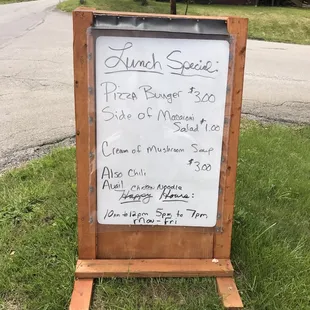 Lunch Special:
Pizza Burger $3.00
Side of Macaroni
Salad $1.00
Cream of Mushroom Soup
$3.00
Also Chili
Avail Chicken Noodle
Happy Hours:
10am to 12pm 5pm to 7pm
Mon-Fri